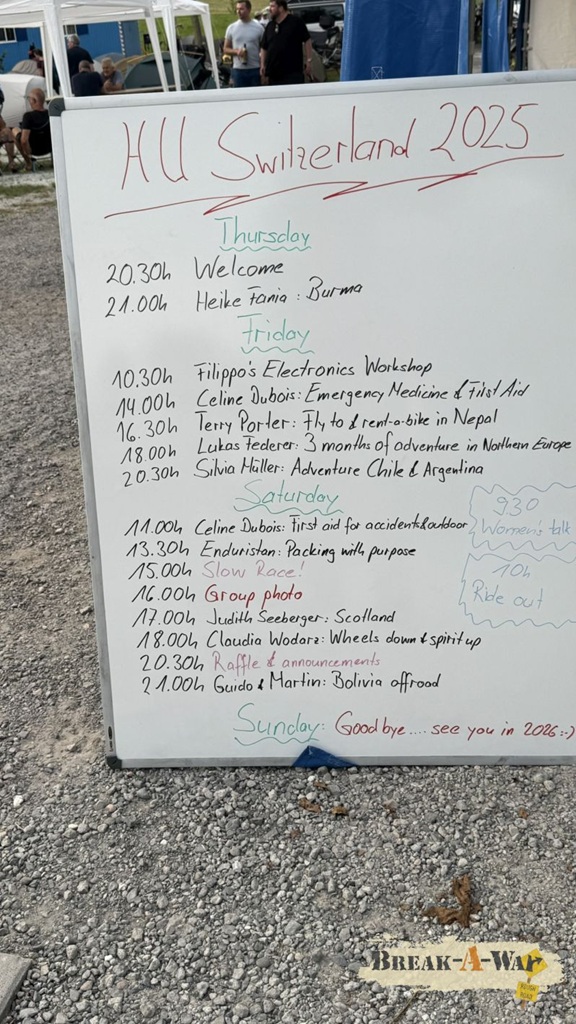 HU Switzerland 2025
Thursday
20.30h Welcome
21.00h Heike Fania : Burma
Friday
10.30h Filippo's Electronics Workshop
14.00h Celine Dubois: Emergency Medicine & First Aid
16.30h Terry Porter: Fly to & rent-a-bike in Nepal
18.00h Lukas Federer: 3 months of adventure in Northern Europe
20.30h Silvia Müller: Adventure Chile & Argentina
Saturday
930
Women's talk
10h
Ride out
11.00h Celine Dubois: First aid for accident&outdoor
13.30h Enduristan: Packing with purpose
15.00h Slow Race!
16.00h Group photo
17.00h Judith Seeberger: Scotland
18.00h Claudia Wodarz: Wheels down & spirit up
20.30h Raffle & announcements
21.00h Guido & Martin: Bolivia offroad
Sunday: Goodbye.... see you in 2026 :-)
BREAK-A-WAY